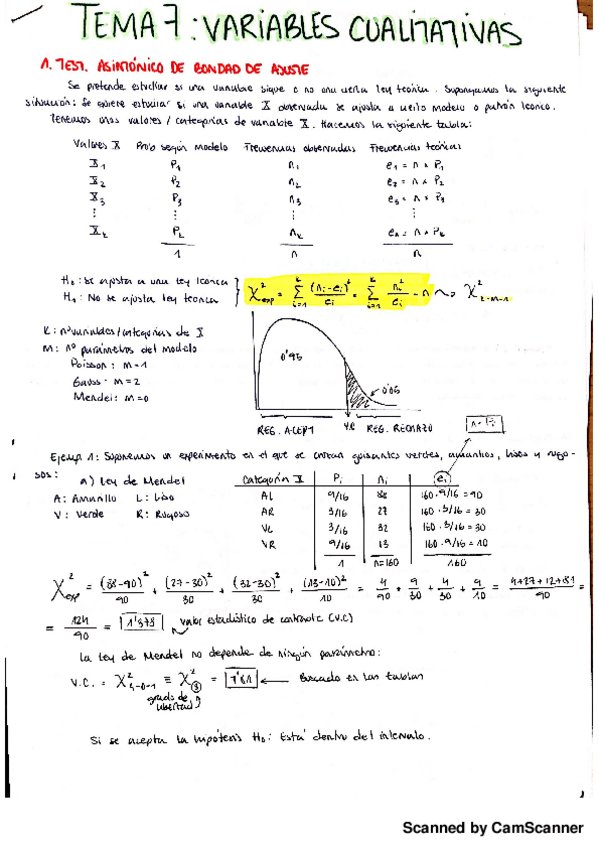 TEMA 7: VARIABLES CUALITATIVAS
1. TEST. ASINTÓNICO DE BONDAD DE AJUSTE
Se pretende estudiar si una variable sigue o no una cierta ley teórica. Supongamos la siguiente
situación: Se quiere estudiar si una variable X observada se ajusta a cierto modelo o patrón teorico.
Tenemos unos valores / categorías de variable X. Hacemos la siguiente tabla:
Valores X Prob según modelo Frecuencias observadas Frecuencias teóricas
X1 P1 n1 e1 = n x P1
X2 P2 n2 e2 = n x P2
X3 P3 n3 e3 = n x P3
⋮ ⋮ ⋮ ⋮
Xk Pk nk ek = n x Pk
1 n n
H0: Se ajusta a una ley teorica
H1: No se ajusta ley teorica
χ²exp = Σ (ni - ei)²/ei = Σ ni²/ei - n ~> χ²
K: nº variables/categorias de X
M: nº parámetros del modelo
Poisson: M=1
Gauss: M=2
Mendel: M=0
0'95
0'05
REG. ACEPT V.C REG. RECHAZO
Ejemplo 1: Suponemos un experimento en el que se cruzan guisantes verdes, amarillos, lisos y rugo-
sos:
a) Ley de Mendel
A: Amarillo L: Liso
V: Verde R: Rugoso
Categoría X Pi ni ei
AL 9/16 88 160·9/16 = 90
AR 3/16 27 160·3/16 = 30
VL 3/16 32 160·3/16 = 30
VR 9/16 13 160·9/16 = 10
1 n=160 160
χ²exp = (88-90)²/90 + (27-30)²/30 + (32-30)²/30 + (13-10)²/10 = 4/90 + 9/30 + 4/30 + 9/10 = 4+27+12+81/90 =
= 124/90 = 1'378 valor estadístico de contraste (V.C)
La ley de Mendel no depende de ningún parámetro:
V.C. = χ²4-0-1 ≡ χ²3 = 7'81 ← Buscado en las tablas
grados de libertad
Si se acepta la hipótesis H0: Está dentro del intervalo.
Scanned by CamScanner